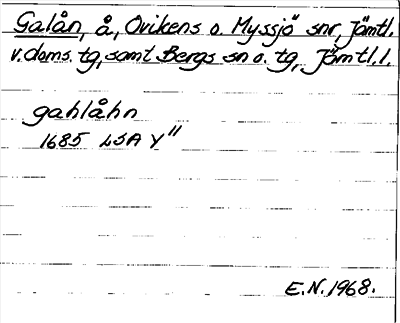 Galån, å, Ovikens o. Myssjö snr, Jämtl.
v. doms. tg, samt Bergs sn o. tg, Jämtl. l.
gahlåhn
1685 LSA Y"
E.N. 1968.